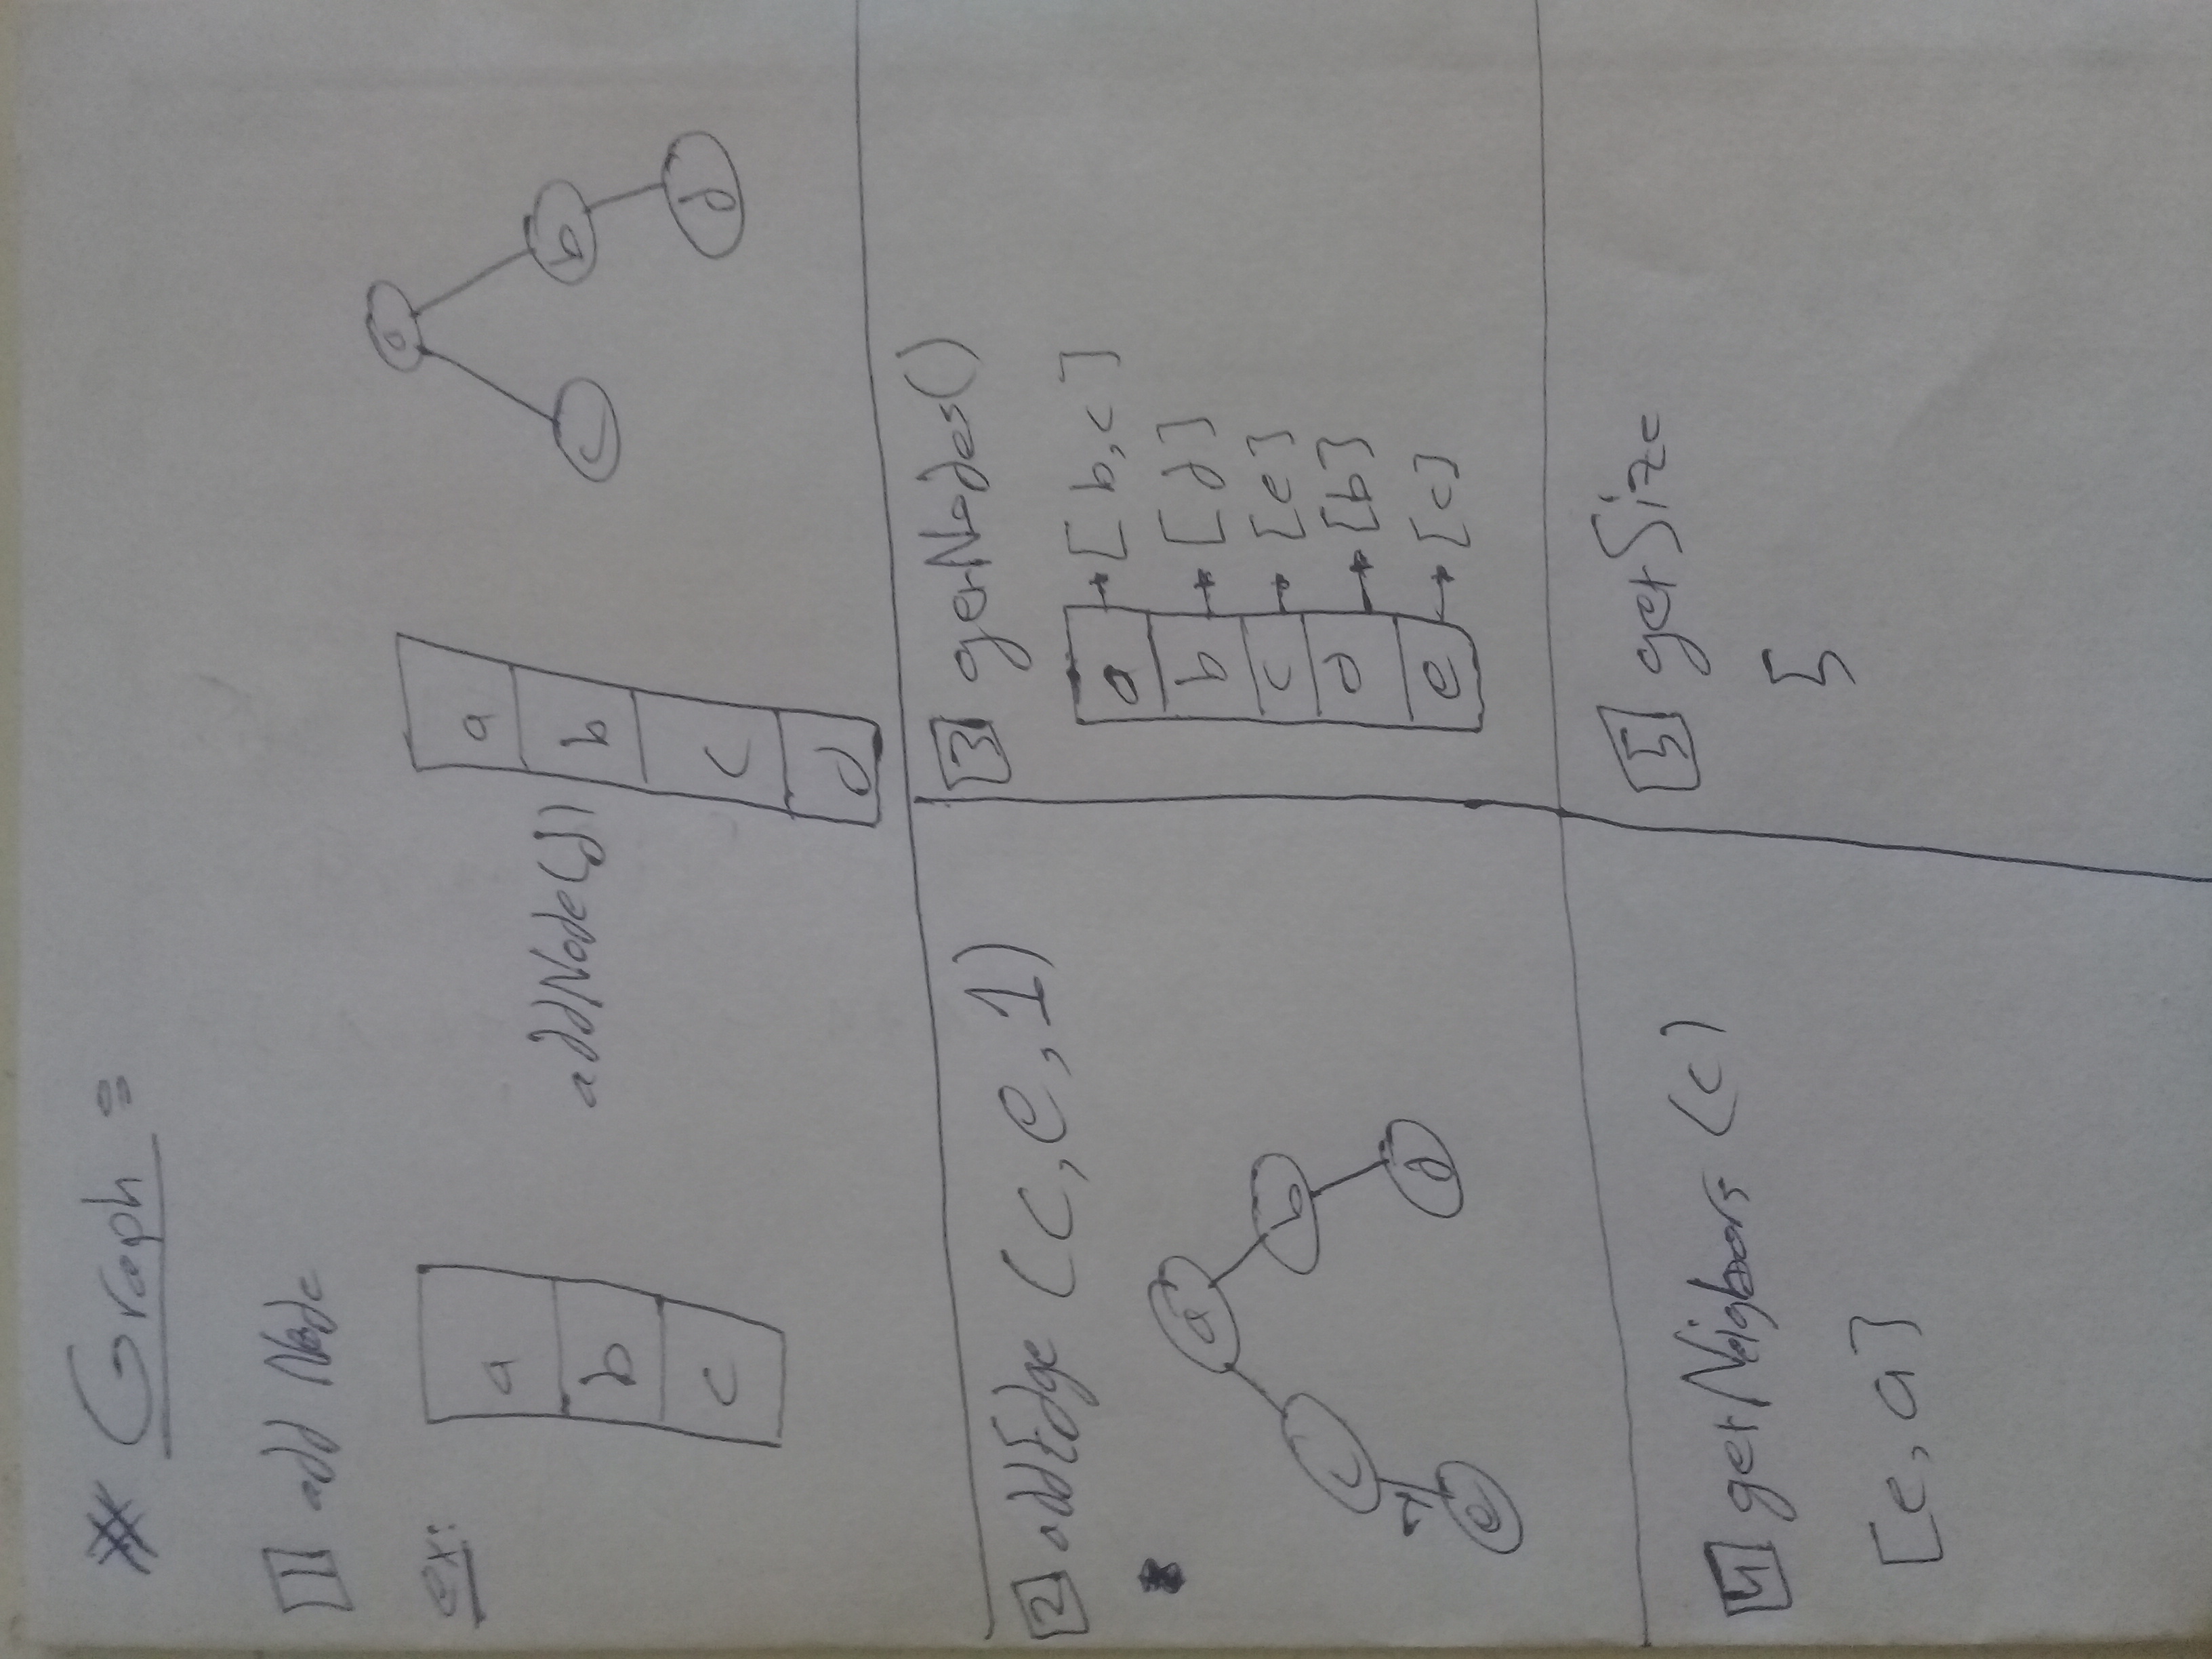 * Graph :
1 add Node
ex:
a
b
c
addNode(d)
a
b
c
d
a
c
b
d
2 addEdge (c,e,1)
a
c
b
1
e
d
3 getNodes()
a → [b,c]
b → [d]
c → [e]
d → [b]
e → [c]
4 getNeigboors (c)
[e,a]
5 getSize
5